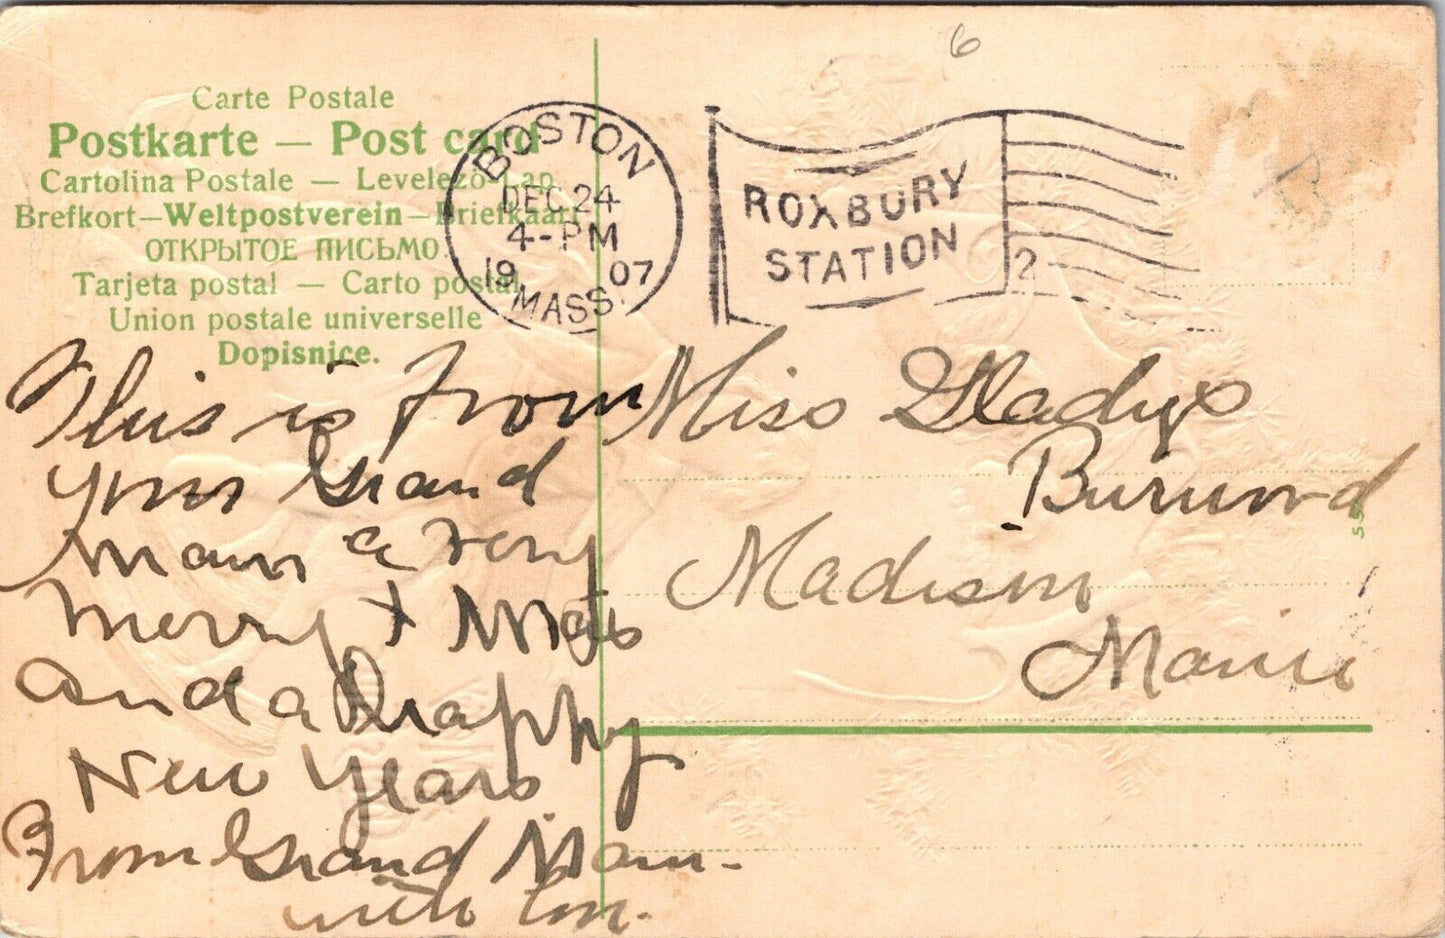 6
Carte Postale
Postkarte — Post card
Cartolina Postale — Levelező-Lap
Brefkort—Weltpostverein—Briefkaart
ОТКРЫТОЕ ПИСЬМО.
Tarjeta postal — Carto postal
Union postale universelle
Dopisnice.
BOSTON
DEC 24
4-PM
19 07
MASS.
ROXBURY
STATION
2
This is from
your Grand
Mam a
Merry X
and a Happy
New Years
From Grand Mam.
with
Miss Gladys
Madison
Maine